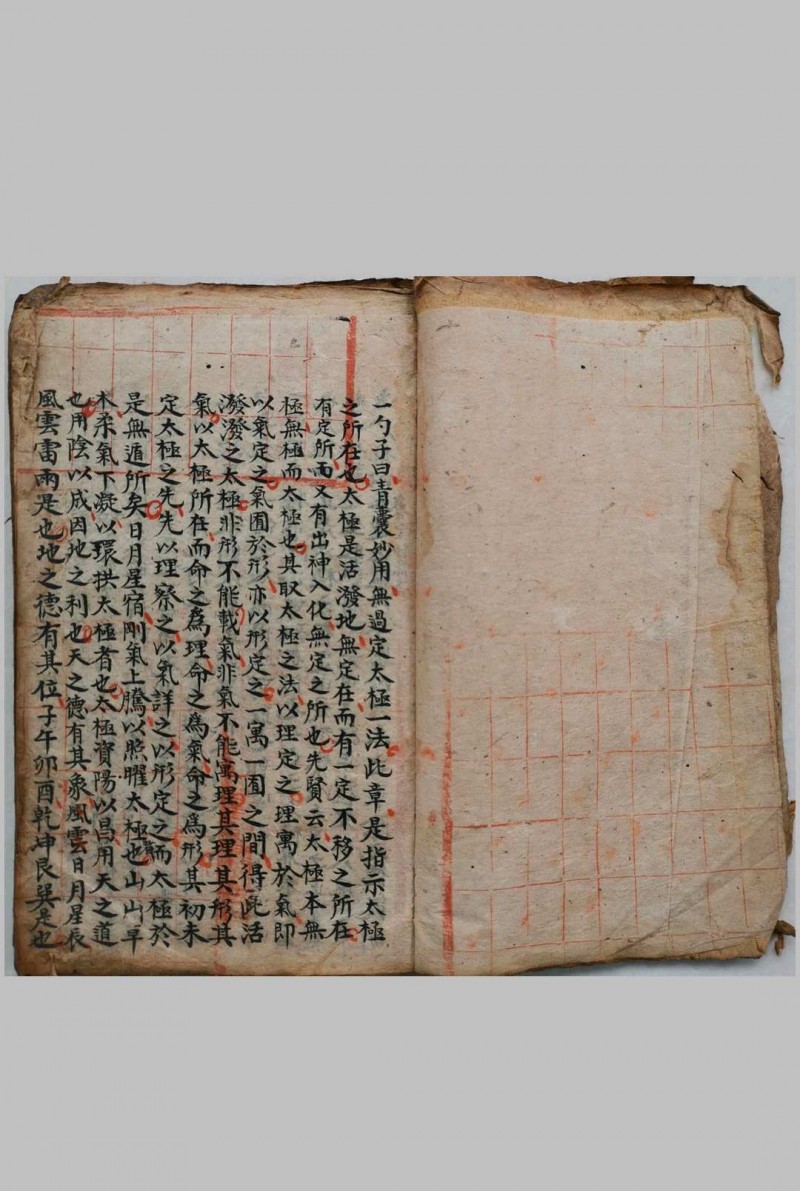 一勺子曰青囊妙用無過定太極一法此章是指示太極
之所在也太極是活潑地無定在而有一定不移之所在
有定所而又有出神入化無定之所也先賢云太極本無
極無極而太極也其取太極之法以理定之理寓於氣即
以氣定之氣囿於形亦以形定之一寓一囿之間得此活
潑潑之太極非形不能載氣非氣不能寓理其理其形其
氣以太極所在而命之為理命之為氣命之為形其初未
定太極之先先以理察之以氣詳之以形定之而太極於
是無遁所矣日月星宿剛氣上騰以照曜太極也山山草
木柔氣下凝以環拱太極者也太極資陽以昌用天之道
也用陰以成因地之利也天之德有其象風雲日月星辰
風雲雷雨是也地之德有其位子午卯酉乾坤艮巽是也